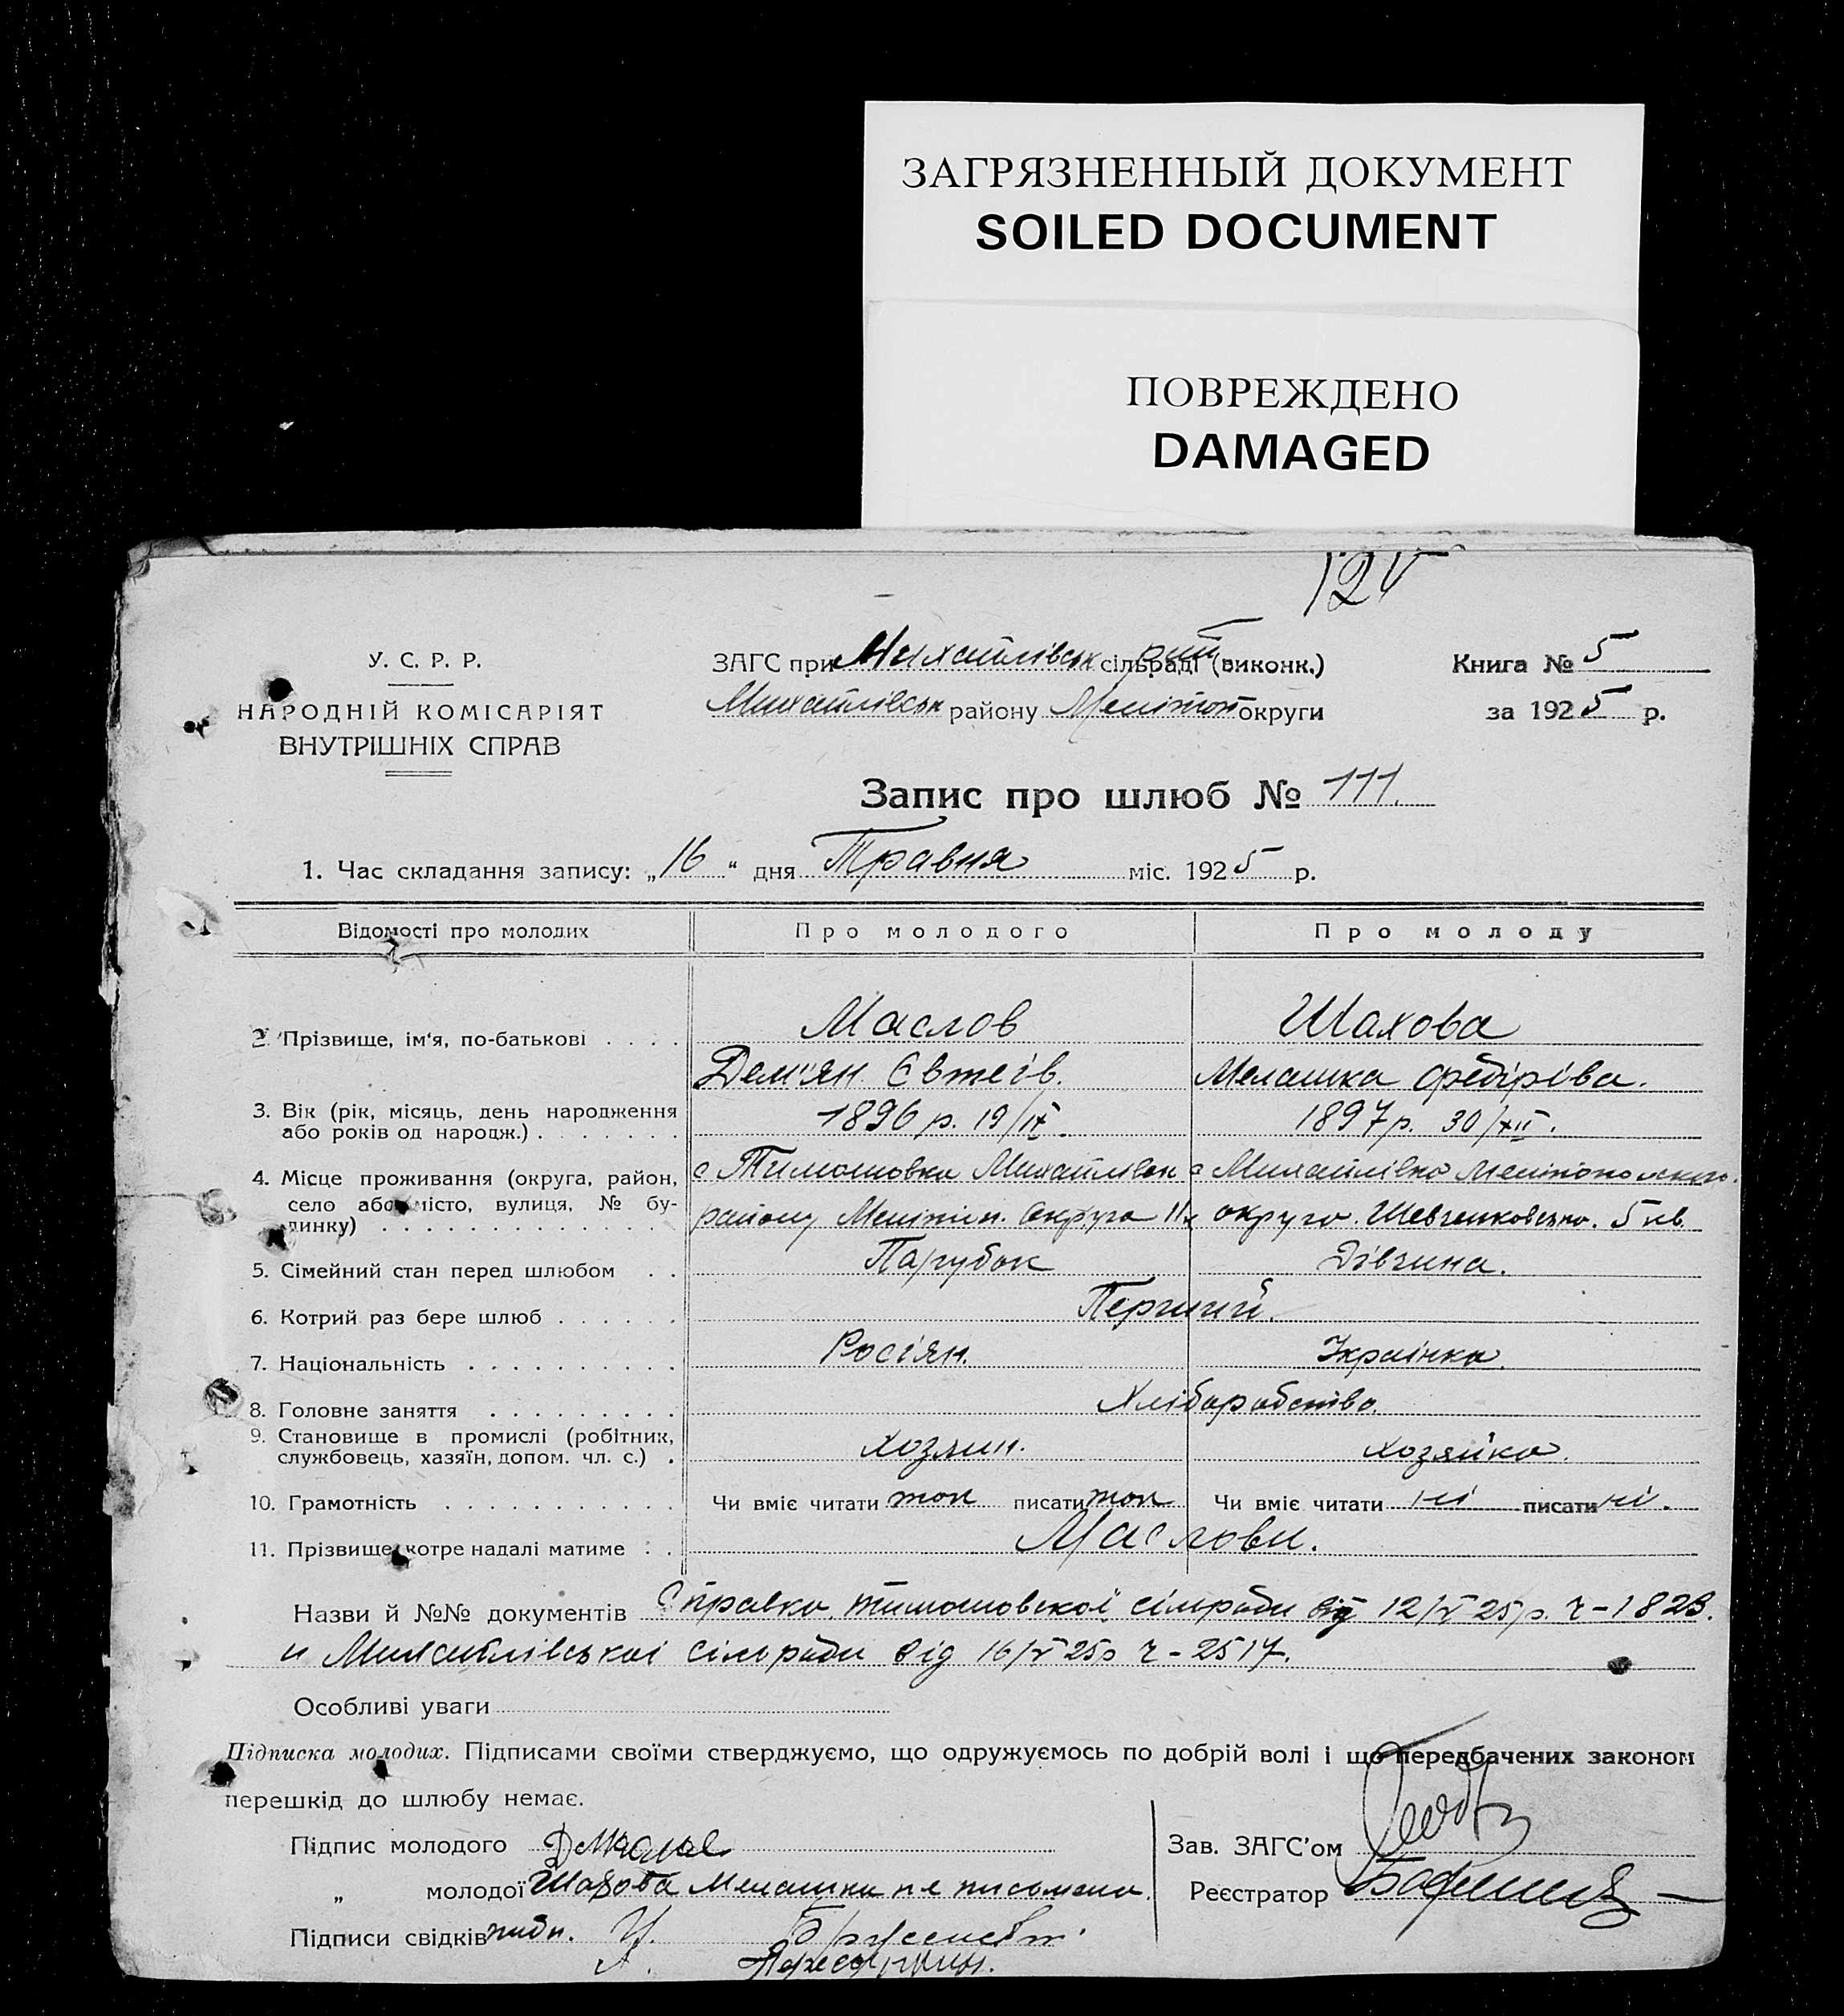 ЗАГРЯЗНЕННЫЙ ДОКУМЕНТ
SOILED DOCUMENT
ПОВРЕЖДЕНО
DAMAGED
У. С. Р. Р.
НАРОДНІЙ КОМІСАРІЯТ
ВНУТРІШНІХ СПРАВ
ЗАГС при Михайлівськ сільраді (виконк.)
Михайлівськ району Мелітоп округи
Книга № 5
за 1925 р.
Запис про шлюб № 111.
1. Час складання запису: „16“ дня Травня міс. 1925 р.
Відомості про молодих Про молодого Про молоду
2. Прізвище, ім'я, по-батькові . . . . Маслов Шахова
Дем'ян Євтеів. Мелашка Федірівa.
3. Вік (рік, місяць, день народження
або років од народж.) . . . . . . . 1896 р. 19/IX. 1897 р. 30/XII.
4. Місце проживання (округа, район, с Тимошовка Михайлівск с Михайлівка Мелітопольского
село або місто, вулиця, № бу-
динку) району Меліт округа округа. Шевченковська. 5 кв.
5. Сімейний стан перед шлюбом . . Парубок Дівчина.
6. Котрий раз бере шлюб . . . . . . Перший.
7. Національність . . . . . . . . . . Росіян. Українка.
8. Головне заняття . . . . . . . . . Хліборобство.
9. Становище в промислі (робітник,
службовець, хазяїн, допом. чл. с.) . Хозяин. Хозяйка.
10. Грамотність . . . . . . . . . . . Чи вміє читати так писати так Чи вміє читати ні писати ні.
11. Прізвище, котре надалі матиме . . Маслови.
Назви й №№ документів Справка Тимошовскоі сільради від 12/V 25 р. ч-1823.
и Михайлівськоі сільради від 16/V 25 р ч-2517.
Особливі уваги
Підписка молодих. Підписами своїми стверджуємо, що одружуємось по добрій волі і що передбачених законом
перешкід до шлюбу немає.
Підпис молодого
„ молодої Шахова Мелашка не письмена.
Підписи свідків
Зав. ЗАГС'ом
Реєстратор